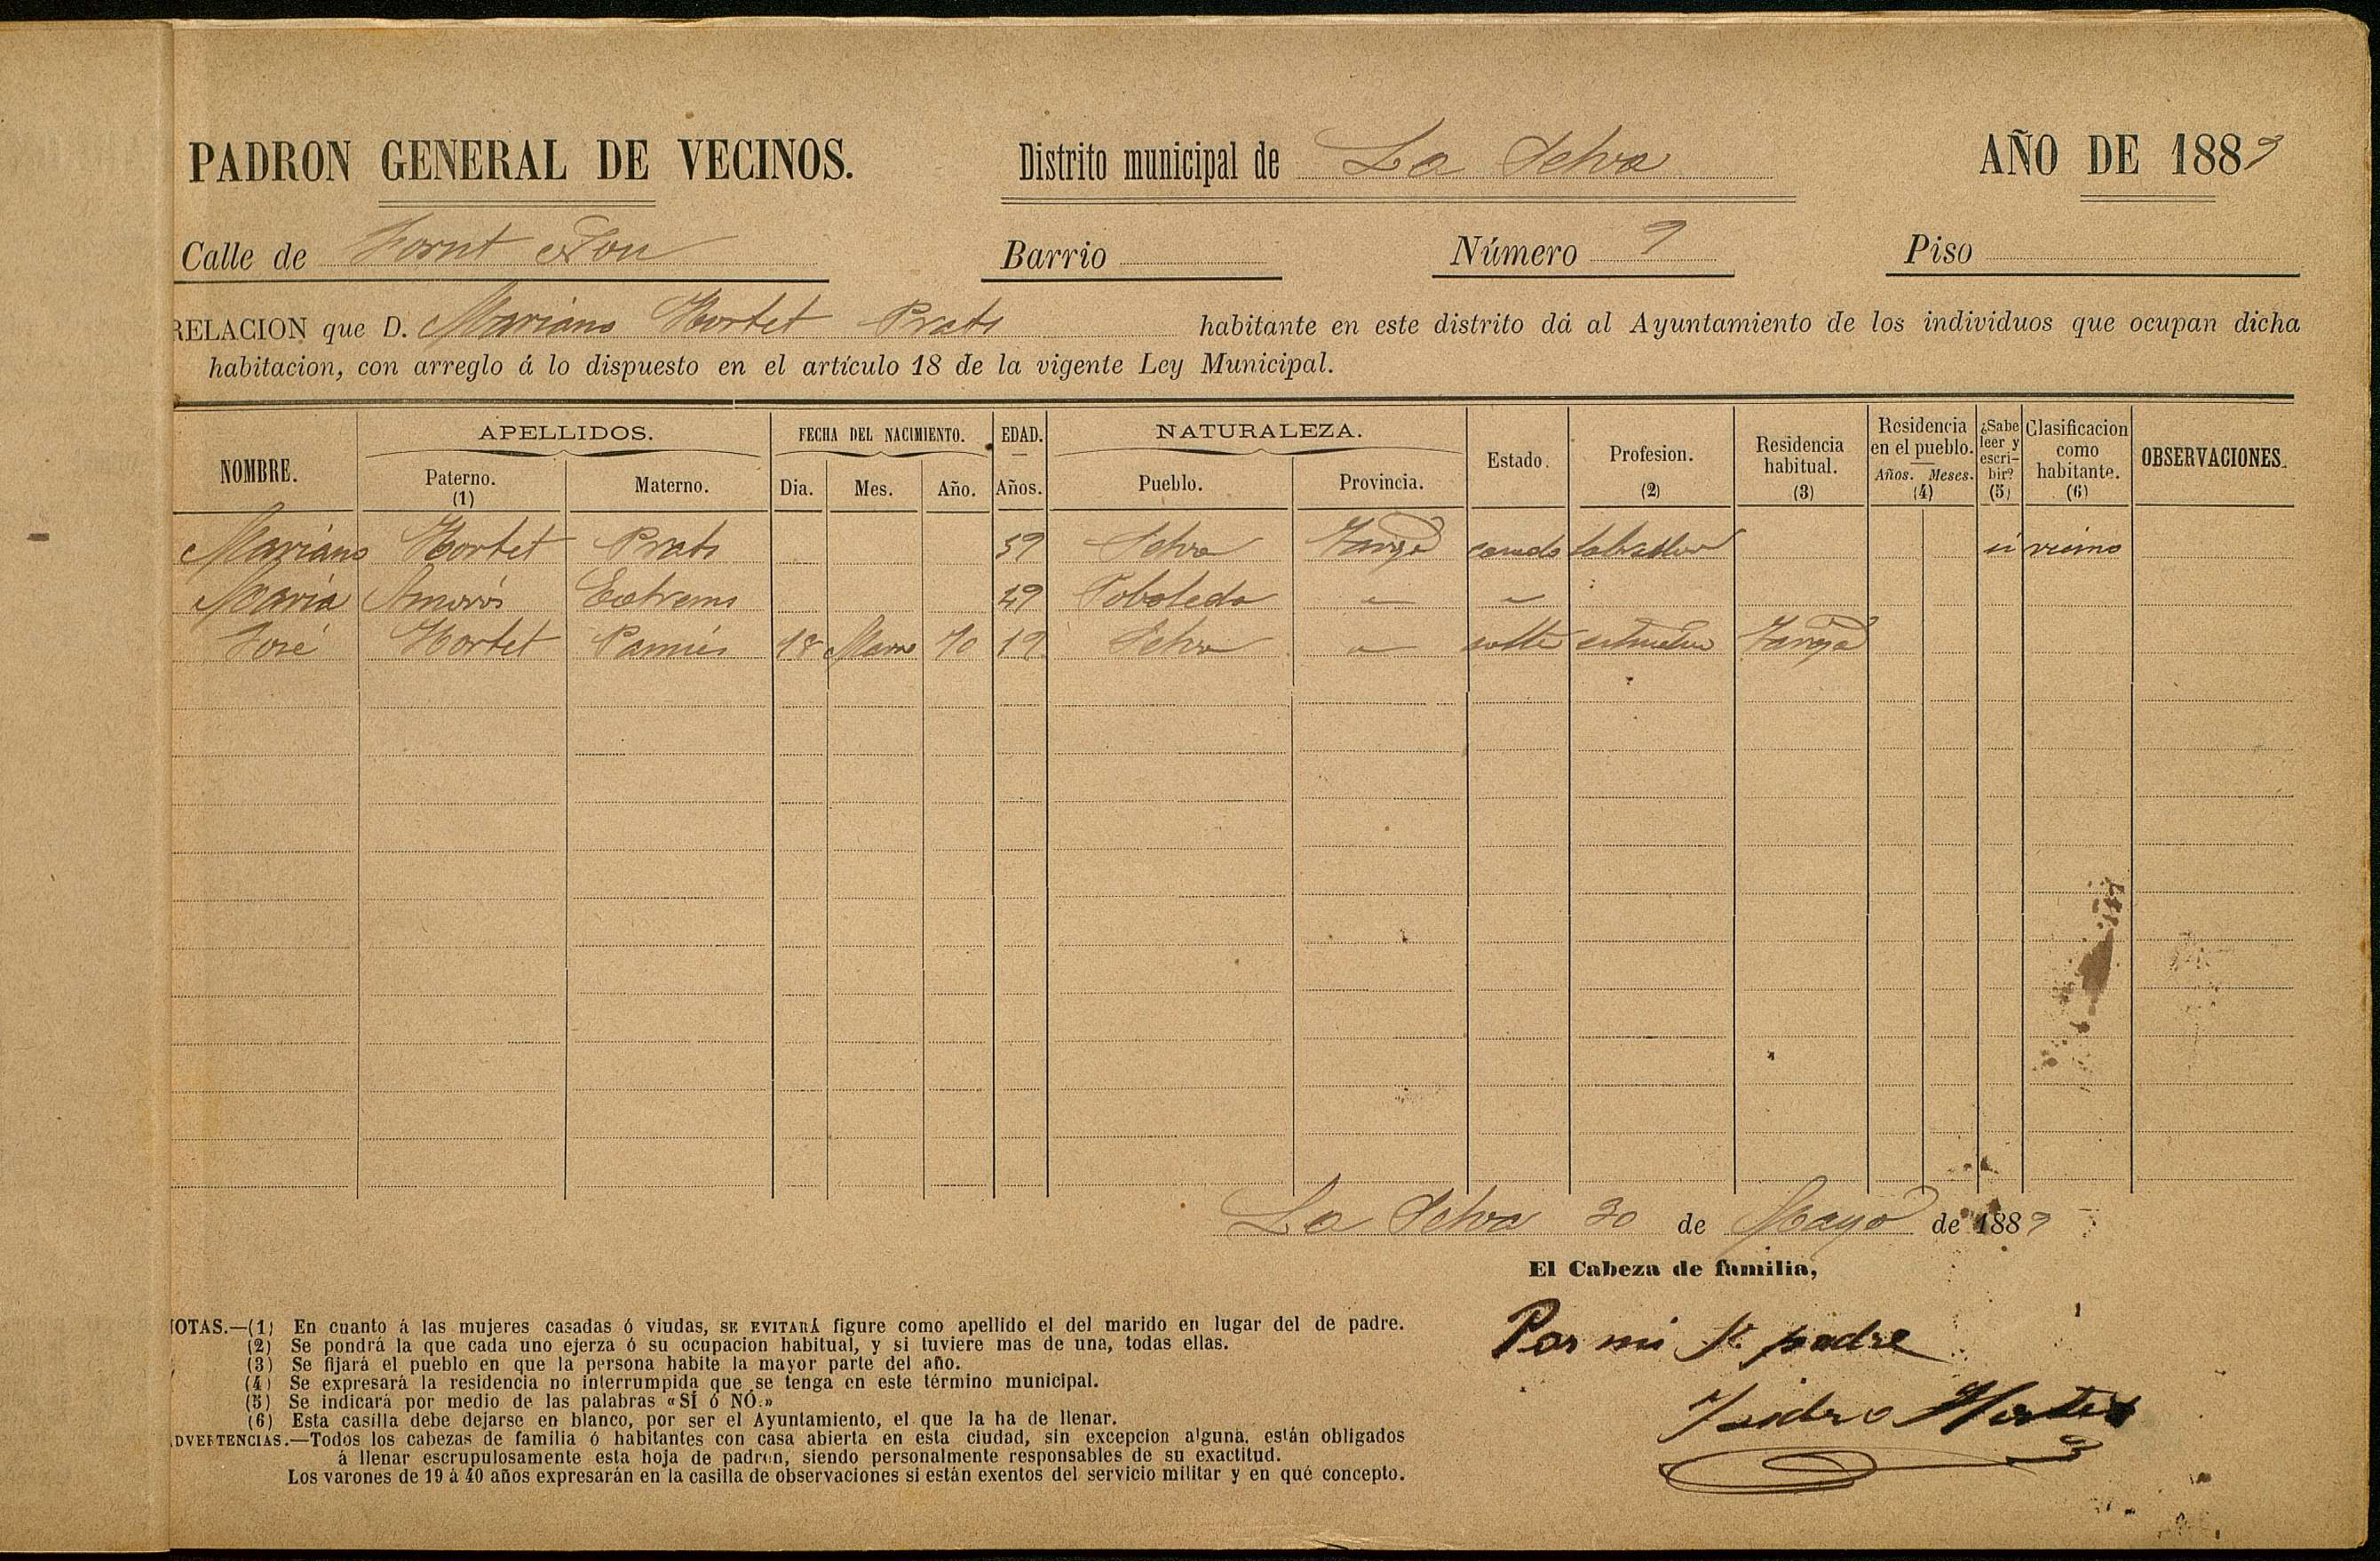 PADRON GENERAL DE VECINOS. Distrito municipal de La Selva AÑO DE 1889
Calle de Fornt Nou Barrio Número 9 Piso
RELACION que D. Mariano Hortet Prats habitante en este distrito dá al Ayuntamiento de los individuos que ocupan dicha
habitacion, con arreglo á lo dispuesto en el artículo 18 de la vigente Ley Municipal.
NOMBRE. APELLIDOS. FECHA DEL NACIMIENTO. EDAD. NATURALEZA. Estado. Profesion. (2) Residencia habitual. (3) Residencia en el pueblo. ¿Sabe leer y escribir? (5) Clasificacion como habitante. (6) OBSERVACIONES.
Paterno. (1) Materno. Dia. Mes. Año. Años. Pueblo. Provincia. Años. Meses. (4)
Mariano Hortet Prats 59 Selva Tarrga casado labrador si vecino
Maria Amorós Extrems 49 Poboleda " "
José Hortet Pamies 18 Marzo 70 19 Selva " soltº estudiante Tarrga
La Selva 30 de Mayo de 1889
El Cabeza de familia,
Por mi Sr. padre
Isidro Hortet
NOTAS.—(1) En cuanto á las mujeres casadas ó viudas, SE EVITARÁ figure como apellido el del marido en lugar del de padre.
(2) Se pondrá la que cada uno ejerza ó su ocupacion habitual, y si tuviere mas de una, todas ellas.
(3) Se fijará el pueblo en que la persona habite la mayor parte del año.
(4) Se expresará la residencia no interrumpida que se tenga en este término municipal.
(5) Se indicará por medio de las palabras «SÍ ó NÓ.»
(6) Esta casilla debe dejarse en blanco, por ser el Ayuntamiento, el que la ha de llenar.
ADVERTENCIAS.—Todos los cabezas de familia ó habitantes con casa abierta en esta ciudad, sin excepcion alguna, están obligados
á llenar escrupulosamente esta hoja de padron, siendo personalmente responsables de su exactitud.
Los varones de 19 á 40 años expresarán en la casilla de observaciones si están exentos del servicio militar y en qué concepto.